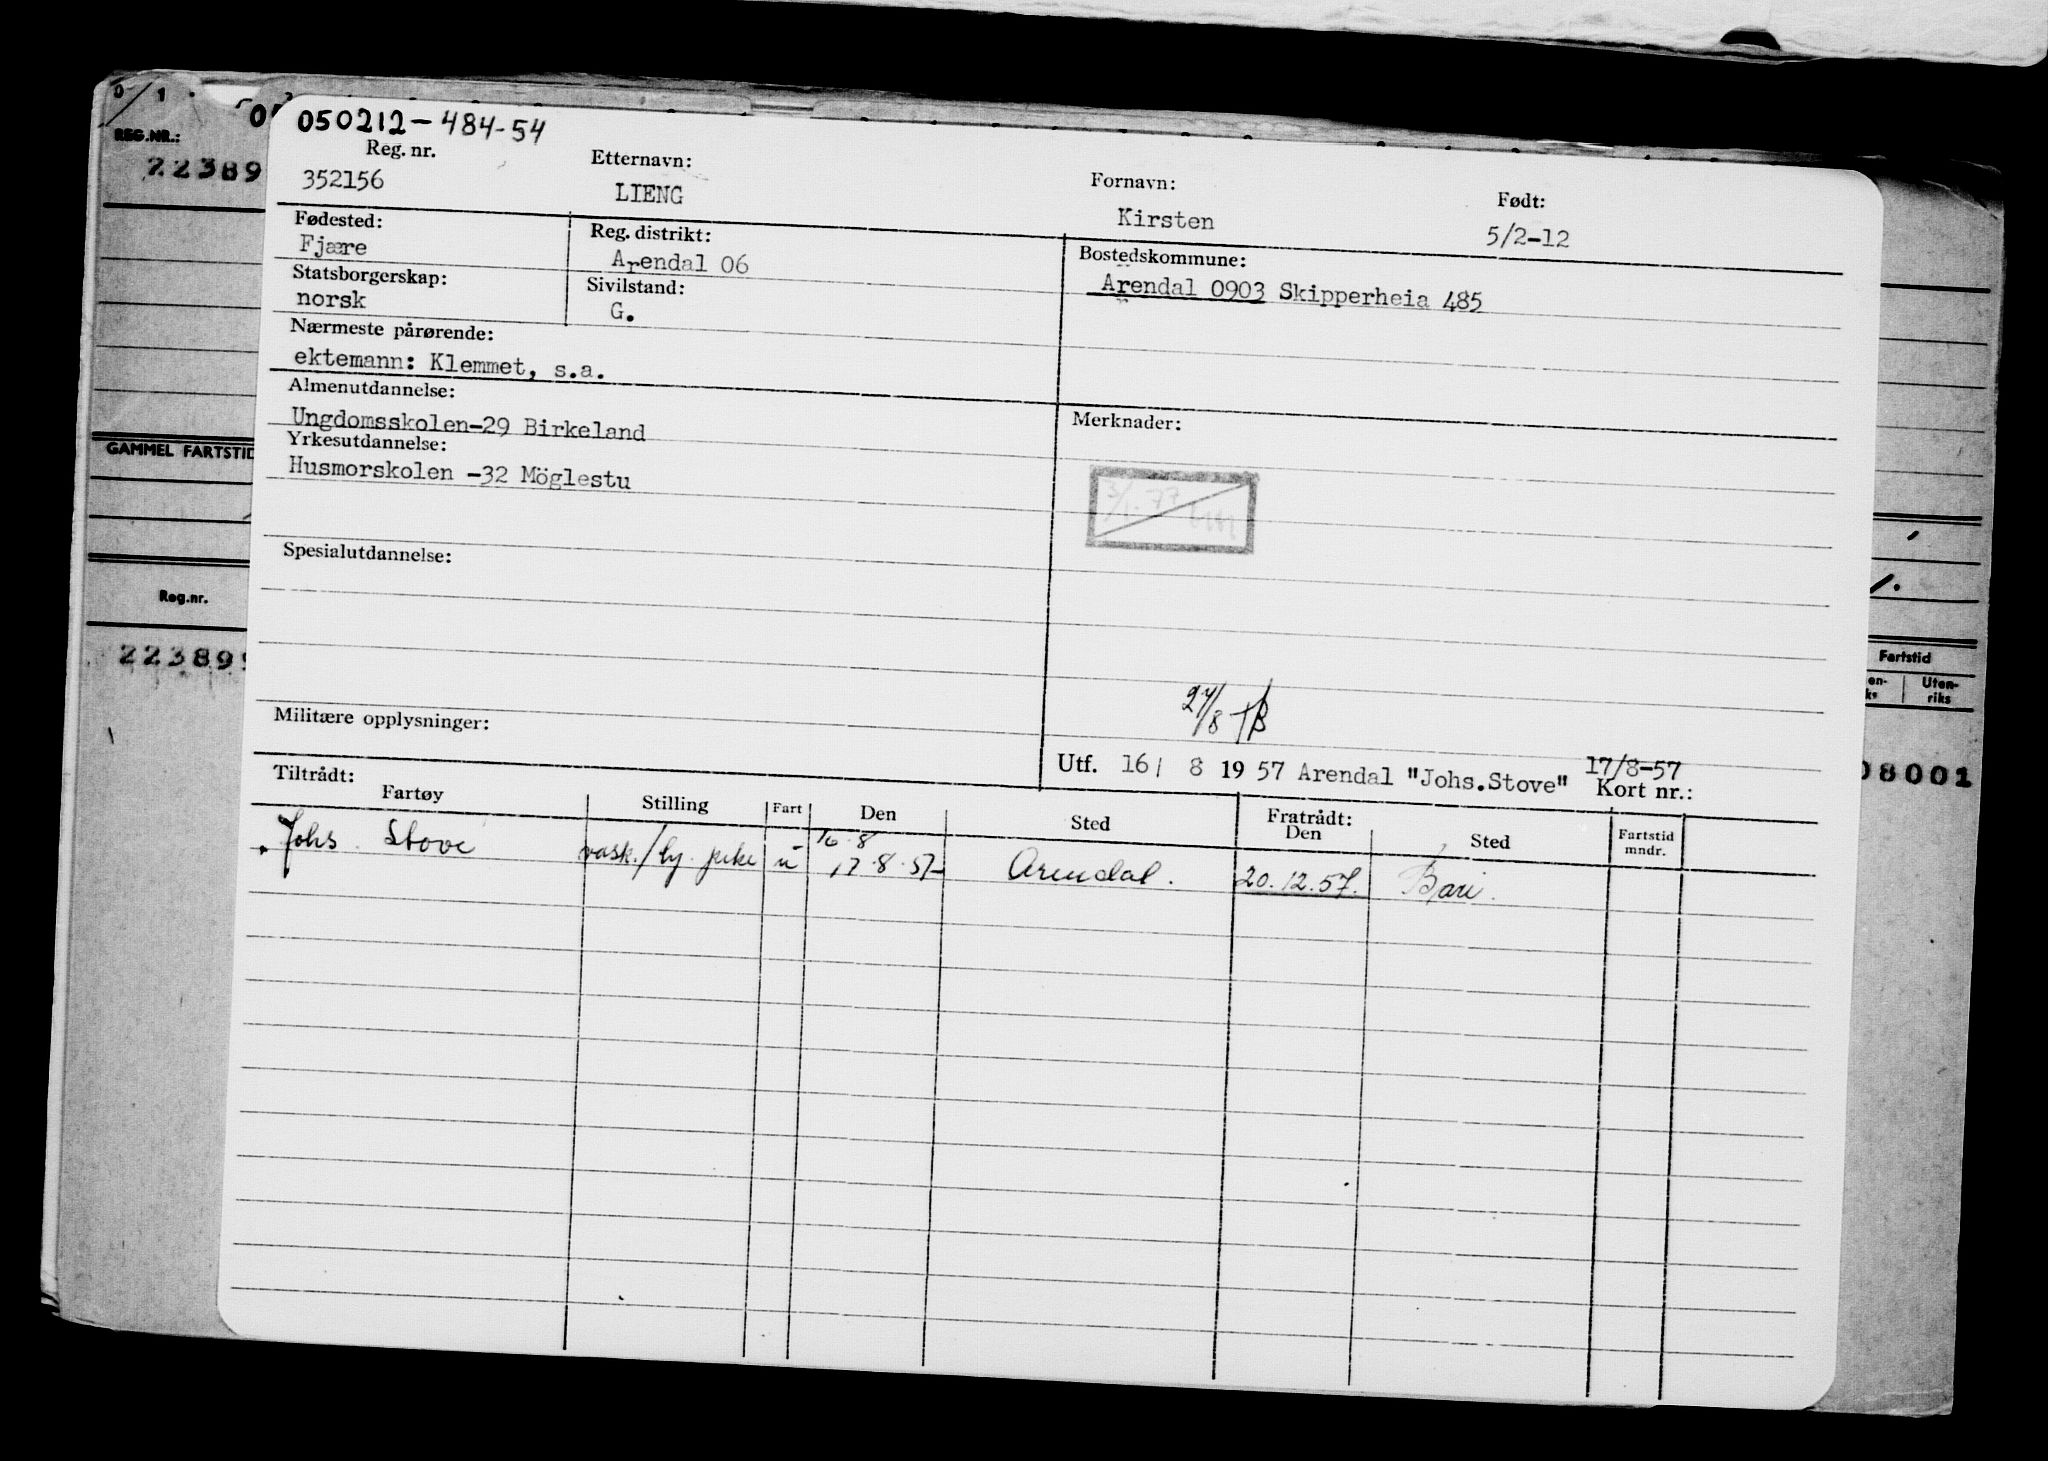 0/1
REG.NR.:
22389
050212-484-54
Reg. nr.
352156
Etternavn:
LIENG
Fornavn:
Kirsten
Født:
5/2-12
Fødested:
Fjære
Reg. distrikt:
Arendal 06
Bostedskommune:
Arendal 0903 Skipperheia 485
Statsborgerskap:
norsk
Sivilstand:
G.
Nærmeste pårørende:
ektemann: Klemmet, s.a.
Almenutdannelse:
Ungdomsskolen-29 Birkeland
Merknader:
Yrkesutdannelse:
Husmorskolen -32 Möglestu
3/1.77
Spesialutdannelse:
Militære opplysninger:
27/8
Utf. 16/ 8 1957 Arendal "Johs.Stove" 17/8-57
Kort nr.:
Tiltrådt:
Fartøy Stilling Fart Den Sted Fratrådt: Den Sted Fartstid mndr.
16.8
Johs. Stove vask./lg. pike u 17.8.57 Arendal. 20.12.57. Bari.
GAMMEL FARTSTID
Reg.nr.
223899
Fartstid
en-
ks
Uten-
riks
08001